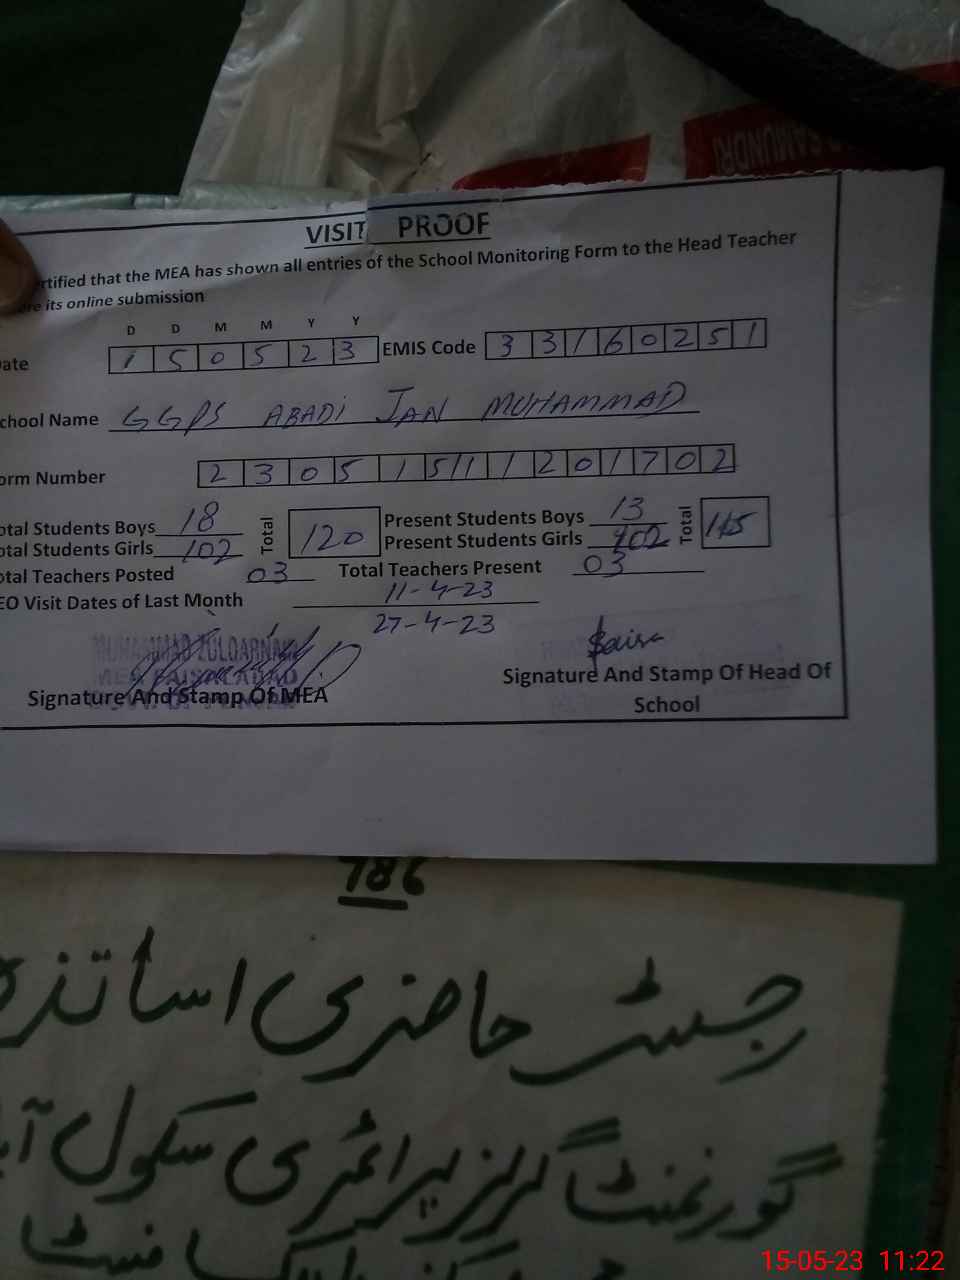 SAMUNDRI
VISIT PROOF
rtified that the MEA has shown all entries of the School Monitoring Form to the Head Teacher
ore its online submission
D D M M Y Y
ate 1 5 0 5 2 3 EMIS Code 3 3 1 6 0 2 5 1
chool Name GGPS ABADI JAN MUHAMMAD
orm Number 2 3 0 5 1 5 1 1 1 2 0 1 7 0 2
otal Students Boys 18 Total 120 Present Students Boys 13 Total 115
otal Students Girls 102 Present Students Girls 102
otal Teachers Posted 03 Total Teachers Present 03
EO Visit Dates of Last Month 11-4-23
27-4-23
MUHAMMAD ZULQARNAIN
MEA FAISALABAD
Signature And Stamp Of MEA Signature And Stamp Of Head Of
School
786
رجسٹر حاضری اساتذہ
گورنمنٹ گرلز پرائمری سکول آبا
15-05-23 11:22